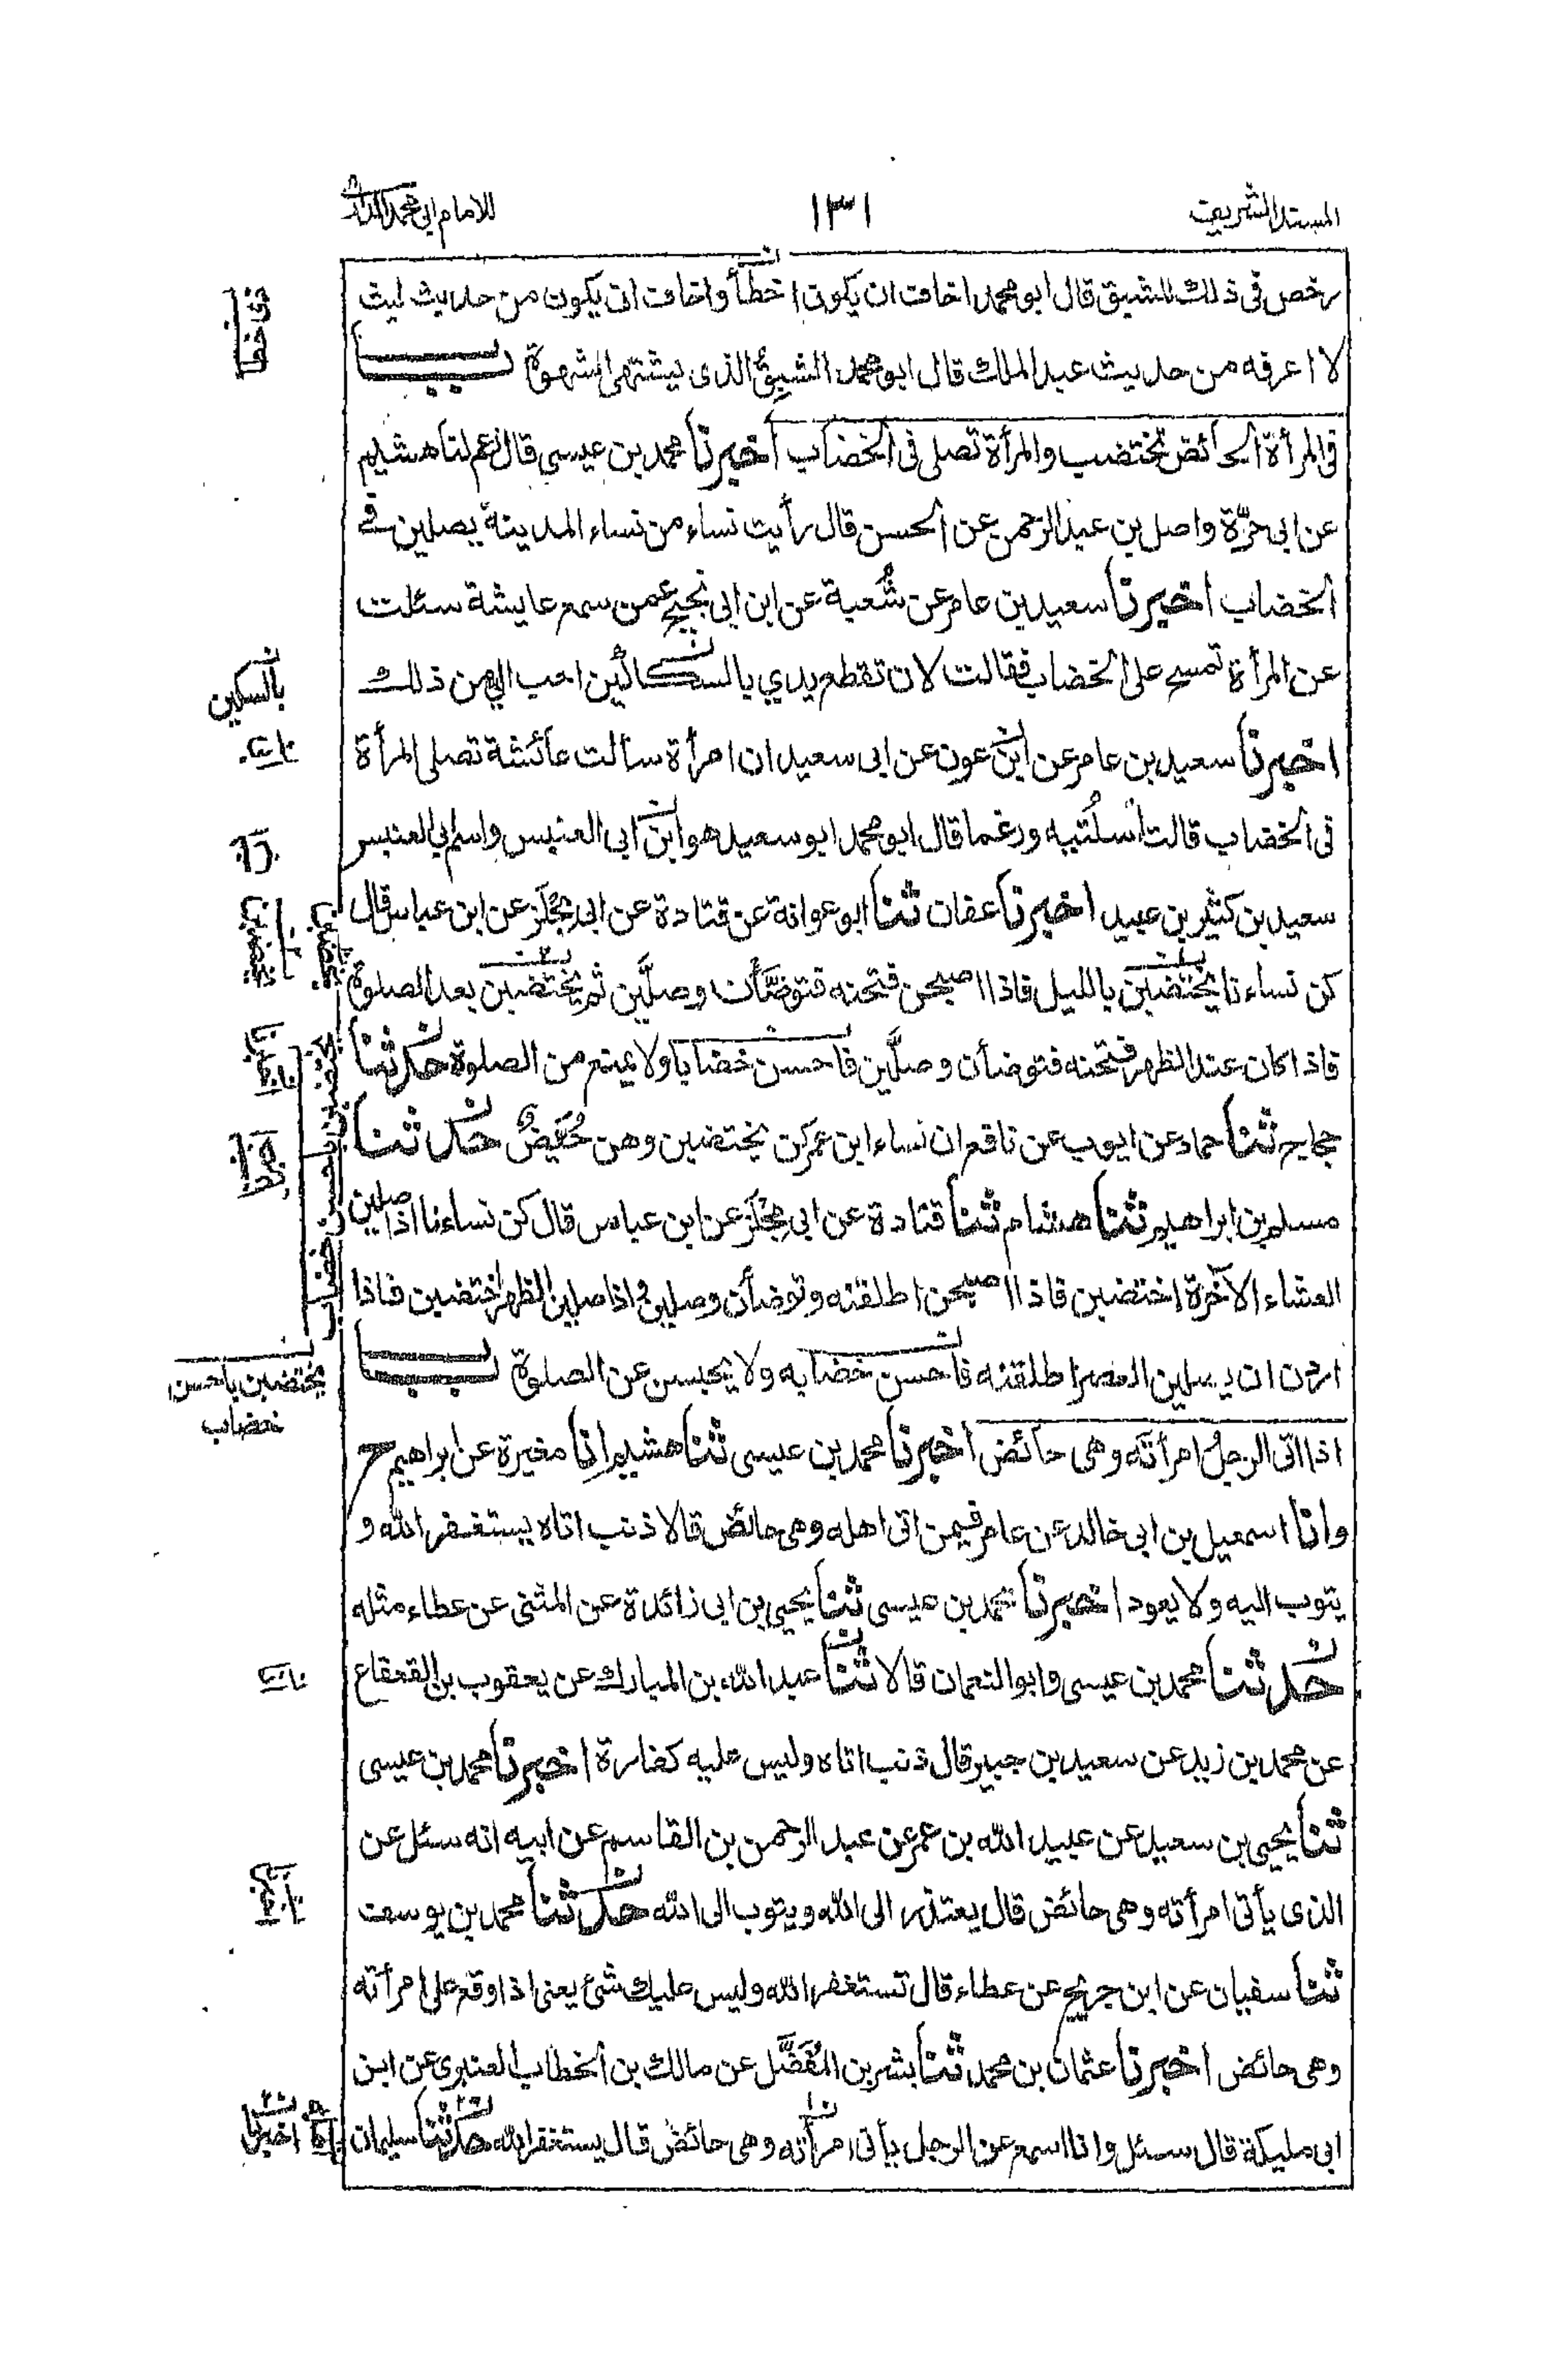 المسند الشريف
١٣١
للامام ابي محمد الدارمي
رخص فى ذلك للشبق قال ابو محمد اخاف ان يكون اخطأ واخاف ان يكون من حديث ليث
لا اعرفه من حديث عبد الملك قال ابو محمد الشبِقُ الذى يشتهى الشهوة باب
فى المرأة الحائض تختضب والمرأة تصلى فى الخضاب اخبرنا محمد بن عيسى قال زعم لنا هشيم
عن ابى حرّة واصل بن عبد الرحمن عن الحسن قال رأيت نساء من نساء المدينة يصلين فى
الخضاب اخبرنا سعيد بن عامر عن شُعبة عن ابن ابى نجيح عمن سمع عايشة سئلت
عن المرأة تمسح على الخضاب فقالت لان تقطع يدي بالسكاكين احب الي من ذلك
اخبرنا سعيد بن عامر عن ابن عون عن ابى سعيد ان امرأة سألت عائشة تصلى المرأة
فى الخضاب قالت أسلُتيه ورغما قال ابو محمد ابو سعيد هو ابن ابى العنبس واسم ابي العنبس
سعيد بن كثير بن عبيد اخبرنا عفان ثنا ابو عوانة عن قتادة عن ابى مِجْلَز عن ابن عباس قال
كن نساءنا يختضبن بالليل فاذا اصبحن فتحنه فتوضّأن وصلَّين ثم يختضبن بعد الصلوة
فاذا كان عند الظهر فتحنه فتوضأن وصلَّين فاحسن خضابا ولا يمنع من الصلوة حدثنا
حجاج ثنا حماد عن ايوب عن نافع ان نساء ابن عمر كن يختضبن وهن حُيَّضٌ حدثنا
مسلم بن ابراهيم ثنا هشام ثنا قتادة عن ابى مِجْلَز عن ابن عباس قال كن نساءنا اذا صلين
العشاء الآخرة اختضبن فاذا اصبحن اطلقنه وتوضأن وصلين واذا صلين الظهر اختضبن فاذا
اردن ان يصلين العصر اطلقنه فاحسن خضابه ولا يحبسن عن الصلوة باب
اذا اتى الرجلُ امرأتَه وهى حائض اخبرنا محمد بن عيسى ثنا هشيم انا مغيرة عن ابراهيم ح
وانا اسمعيل بن ابى خالد عن عامر فيمن اتى اهله وهى حائض قالا ذنب اتاه يستغفر الله و
يتوب اليه ولا يعود اخبرنا محمد بن عيسى ثنا يحيى بن ابى زائدة عن المثنى عن عطاء مثله
حدثنا محمد بن عيسى وابو النعمان قالا ثنا عبد الله بن المبارك عن يعقوب بن القعقاع
عن محمد بن زيد عن سعيد بن جبير قال ذنب اتاه وليس عليه كفارة اخبرنا محمد بن عيسى
ثنا يحيى بن سعيد عن عبيد الله بن عمر عن عبد الرحمن بن القاسم عن ابيه انه سئل عن
الذى يأتى امرأته وهى حائض قال يعتذر الى الله ويتوب الى الله حدثنا محمد بن يوسف
ثنا سفيان عن ابن جريج عن عطاء قال تستغفر الله وليس عليك شئ يعنى اذا وقع على امرأته
وهى حائض اخبرنا عثمان بن محمد ثنا بشر بن المُفَضَّل عن مالك بن الخطاب العنبرى عن ابن
ابى مليكة قال سئل وانا اسمع عن الرجل يأتى امرأته وهى حائض قال يستغفر الله حدثنا سليمان
بالسكين
يختضبن باحسن
خضاب
اخبرنا